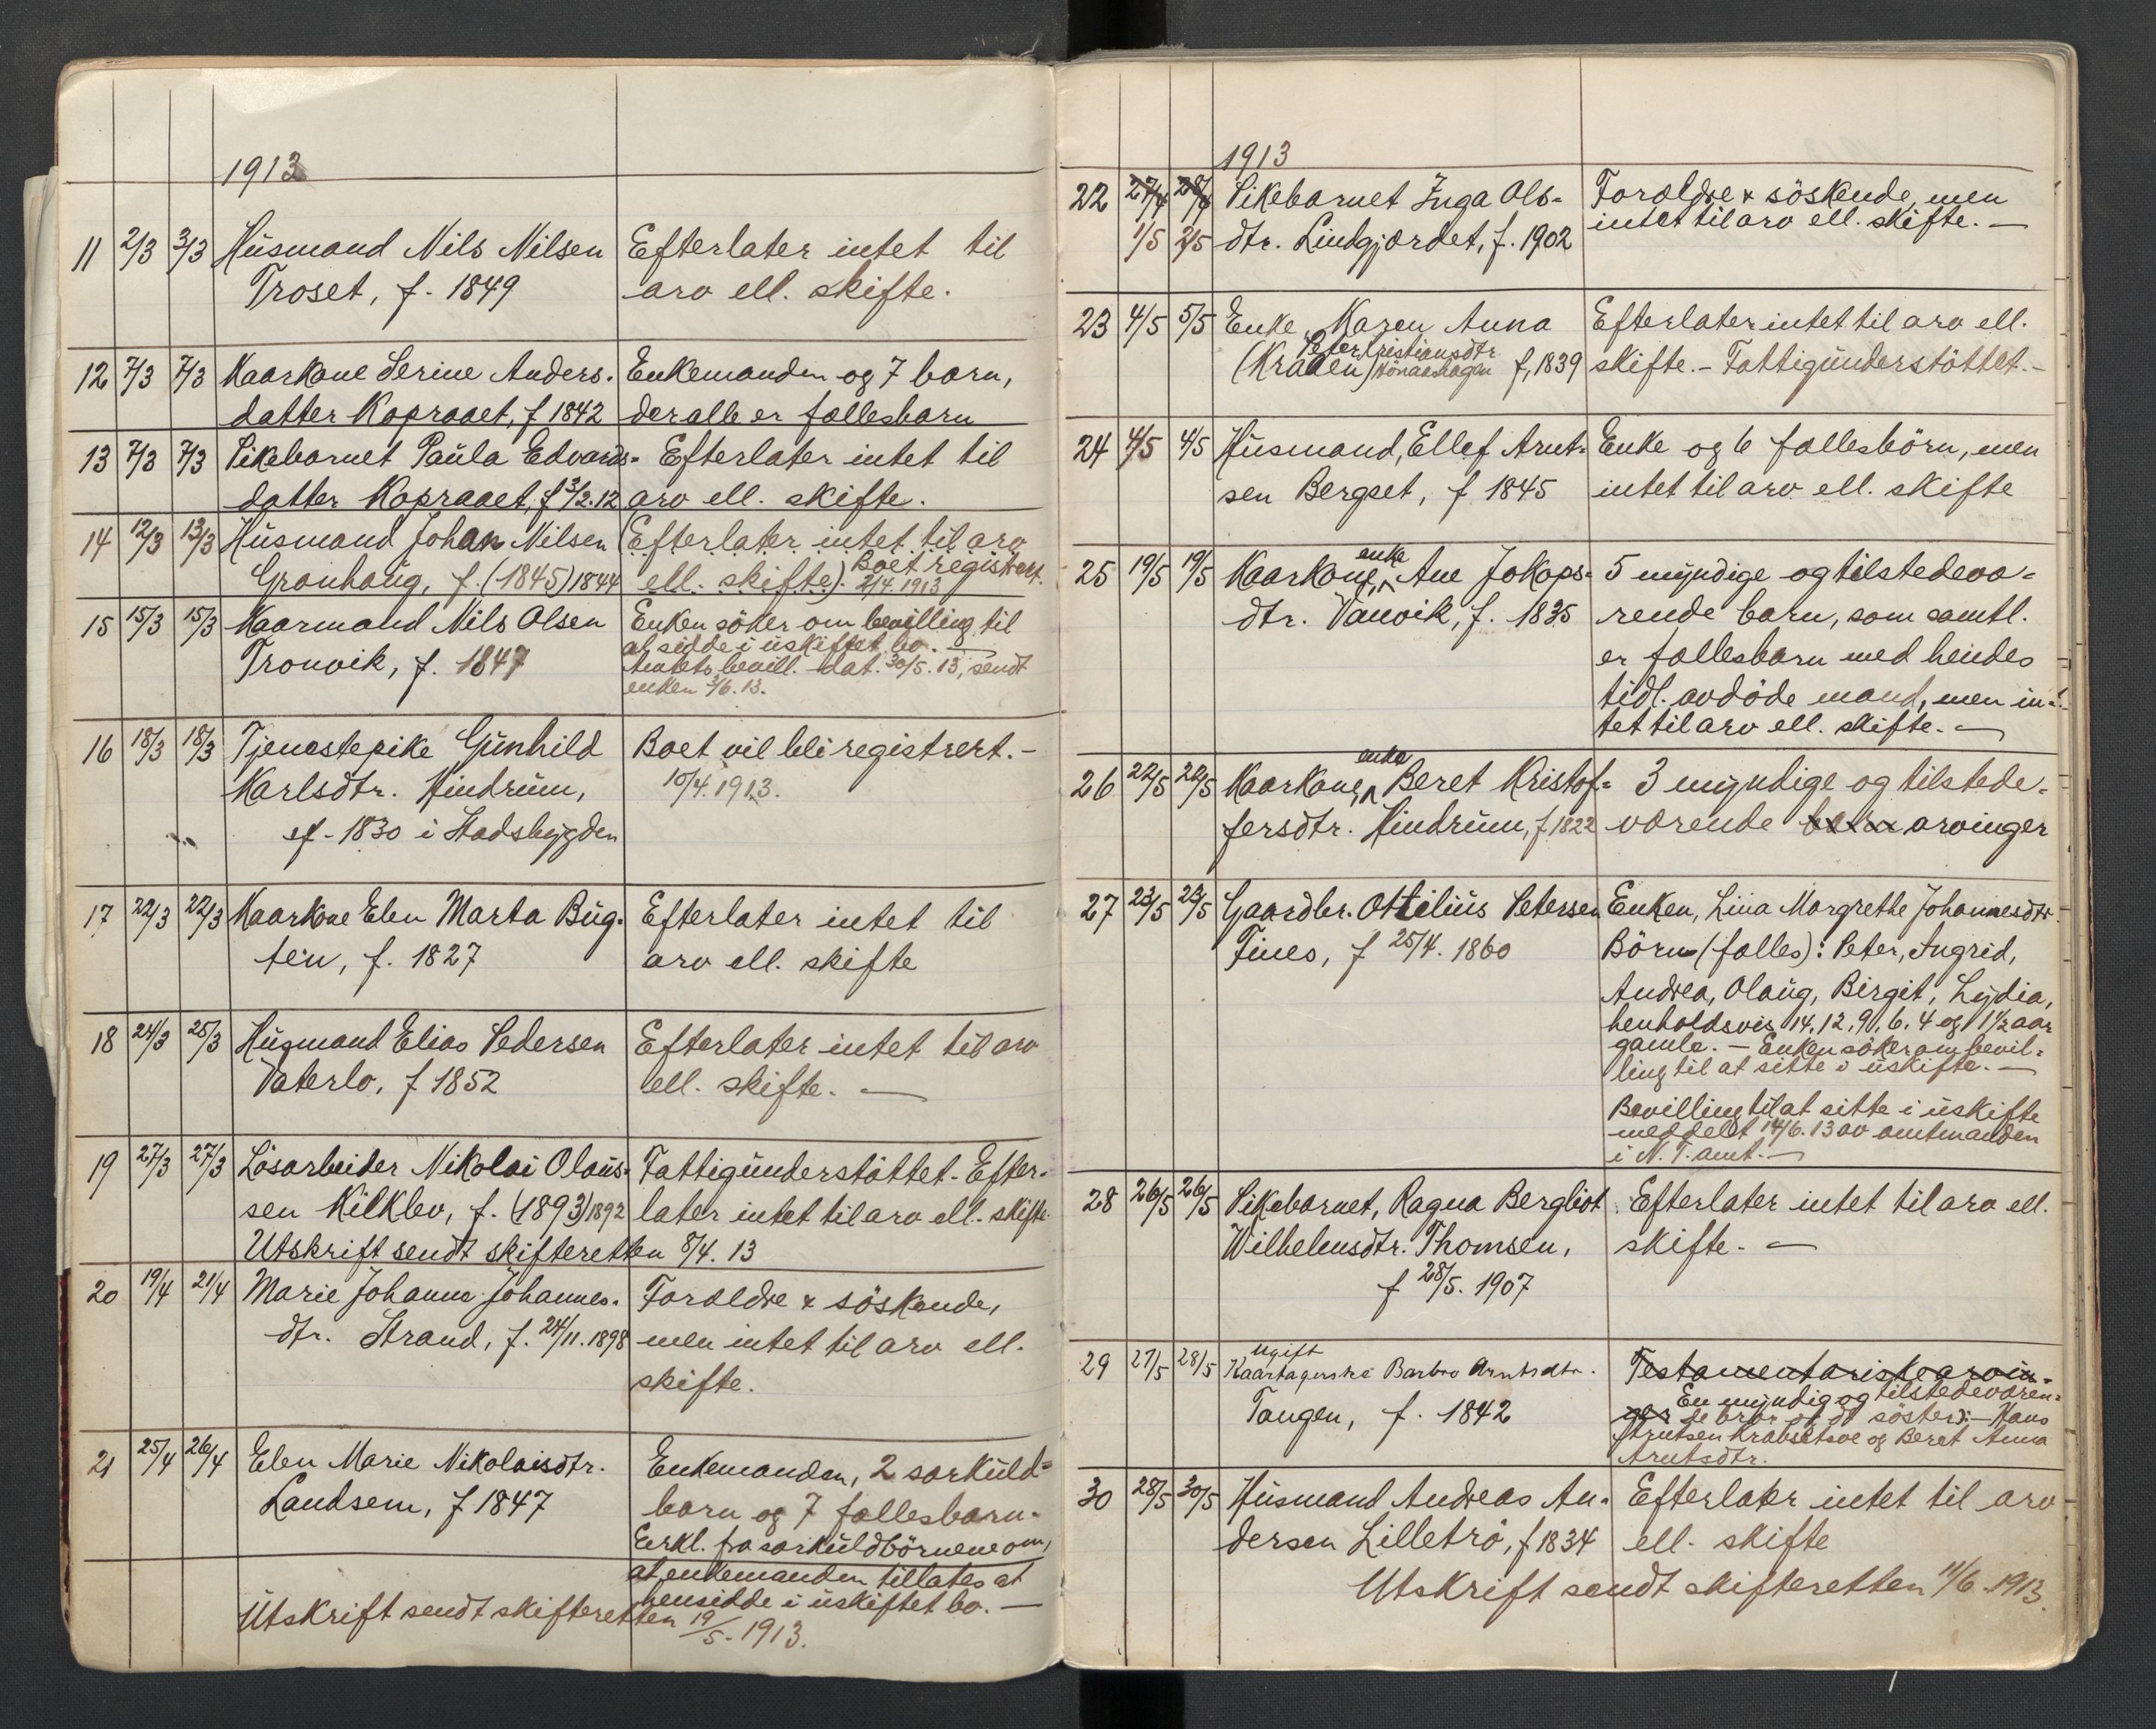 1913
11 2/3 3/3 Husmand Nils Nilsen Efterlater intet til
Troset, f. 1849 arv ell. skifte.
12 7/3 7/3 Kaarkone Serine Anders- Enkemanden og 7 barn,
datter Kopraaet, f 1842 der alle er fællesbarn
13 7/3 7/3 Pikebarnet Paula Edvards= Efterlater intet til
datter Kopraaet, f 3/2.12 arv ell. skifte.
14 12/3 13/3 Husmand Johan Nilsen (Efterlater intet til arv
Granhaug, f. (1845) 1844 ell. skifte). Boet registrert.
2/4. 1913
15 15/3 15/3 Kaarmand Nils Olsen Enken söker om bevilling til
Tronvik, f. 1847 at sidde i uskiftet bo. —
Amtets bevill. dat. 30/5. 13, sendt
enken 3/6. 13.
16 18/3 18/3 Tjenestepike Gunhild Boet vil bli registrert.-
Karlsdtr. Hindrum, 10/4. 1913.
f. 1830 i Stadsbygden
17 22/3 22/3 Kaarkone Elen Marta Bug- Efterlater intet til
ten, f. 1827 arv ell. skifte
18 24/3 25/3 Husmand Elias Pedersen Efterlater intet til arv
Vaterlo, f 1852 ell. skifte. —
19 27/3 27/3 Lösarbeider Nikolai Olaus= Fattigunderstöttet. Efter-
sen Kilklev, f. (1893) 1892 later intet til arv ell. skifte.
Utskrift sendt skifteretten 8/4. 13
20 19/4 21/4 Marie Johanna Johannes- Forældre & söskende,
dtr. Strand, f. 24/11. 1898 men intet til arv ell.
skifte.
21 25/4 26/4 Elen Marie Nikolaisdtr. Enkemanden, 2 særkuld=
Landsem, f 1847 barn og 7 fællesbarn.
Erkl. fra særkuldbörnene om,
at enkemanden tillates at
hensidde i uskiftet bo. —
Utskrift sendt skifteretten 19/5. 1913.
1913
22 27/4 28/4 Pikebarnet Inga Ols= Forældre & söskende, men
1/5 2/5 dtr. Lindgjærdet, f. 1902 intet til arv ell. skifte. —
23 4/5 5/5 Enke, Karen Anna Efterlater intet til arv ell.
Peter Kristiansdtr
(Kraaen) f, 1839 skifte.- Fattigunderstöttet.-
24 4/5 4/5 Husmand, Ellef Arnt- Enke og 6 fællesbörn, men
sen Bergset, f 1845 intet til arv ell. skifte
enke
25 19/5 19/5 Kaarkone, Ane Jakops= 5 myndige og tilstedevæ=
dtr. Vanvik, f. 1835 rende barn, som samtl.
er fællesbarn med hendes
tidl. avdöde mand, men in=
tet til arv ell. skifte. —
enke
26 22/5 22/5 Kaarkone, Beret Kristof= 3 myndige og tilstede=
fersdtr. Hindrum, f 1822 værende barn arvinger
27 23/5 23/5 Gaardbr. Ottilius Petersen Enken, Lina Margrethe Johannesdtr.
Fines, f 25/4. 1860 Börn (fælles): Peter, Ingrid,
Andrea, Olaug, Birgit, Lydia,
henholdsvis 14, 12, 9, 6, 4 og 1 1/2 aar
gamle. — Enken söker om bevil=
ling til at sitte i uskifte. —
Bevilling til at sitte i uskifte
meddelt 14/6. 13 av amtmanden
i N. T. amt. —
28 26/5 26/5 Pikebarnet, Ragna Bergliot Efterlater intet til arv ell.
Wilhelmsdtr. Thomsen, skifte. —
f 28/5. 1907
ugift
29 27/5 28/5 Kaartagerske Barbro Arntsdtr. Testamentariske arvin=
Tangen, f. 1842 En myndig og tilstedeværen=
ger de bror og do söster: — Hans
Arntsen og Beret Anna
Arntsdtr.
30 28/5 30/5 Husmand Andreas An- Efterlater intet til arv
dersen Lilletrö, f 1834 ell. skifte
Utskrift sendt skifteretten 11/6. 1913.